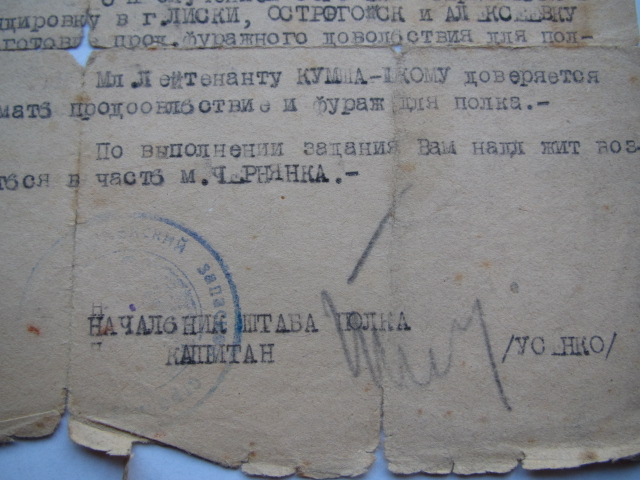 дировку в г.ЛИСКИ, ОСТРОГОЖСК и АЛЕКСЕЕВКУ
прод.фуражного доволствия для пол-
Мл Лейтенанту доверяется
мать продоовльствие и фураж для полка.-
По выполнении задания Вам надл жит воз-
ться в часть м.ЧЕРНЯНКА.-
запа
НАЧАЛЬНИК ШТАБА ПОЛКА
КАПИТАН /УС НКО/